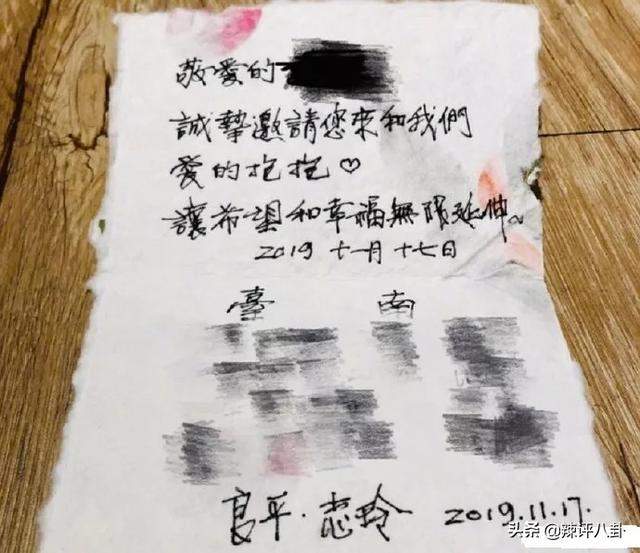 敬愛的
誠摯邀請您來和我們
愛的抱抱♡
讓希望和幸福無限延伸。
2019 十一月 十七日
臺 南
良平·志玲 2019.11.17.
头条 @辣评八卦